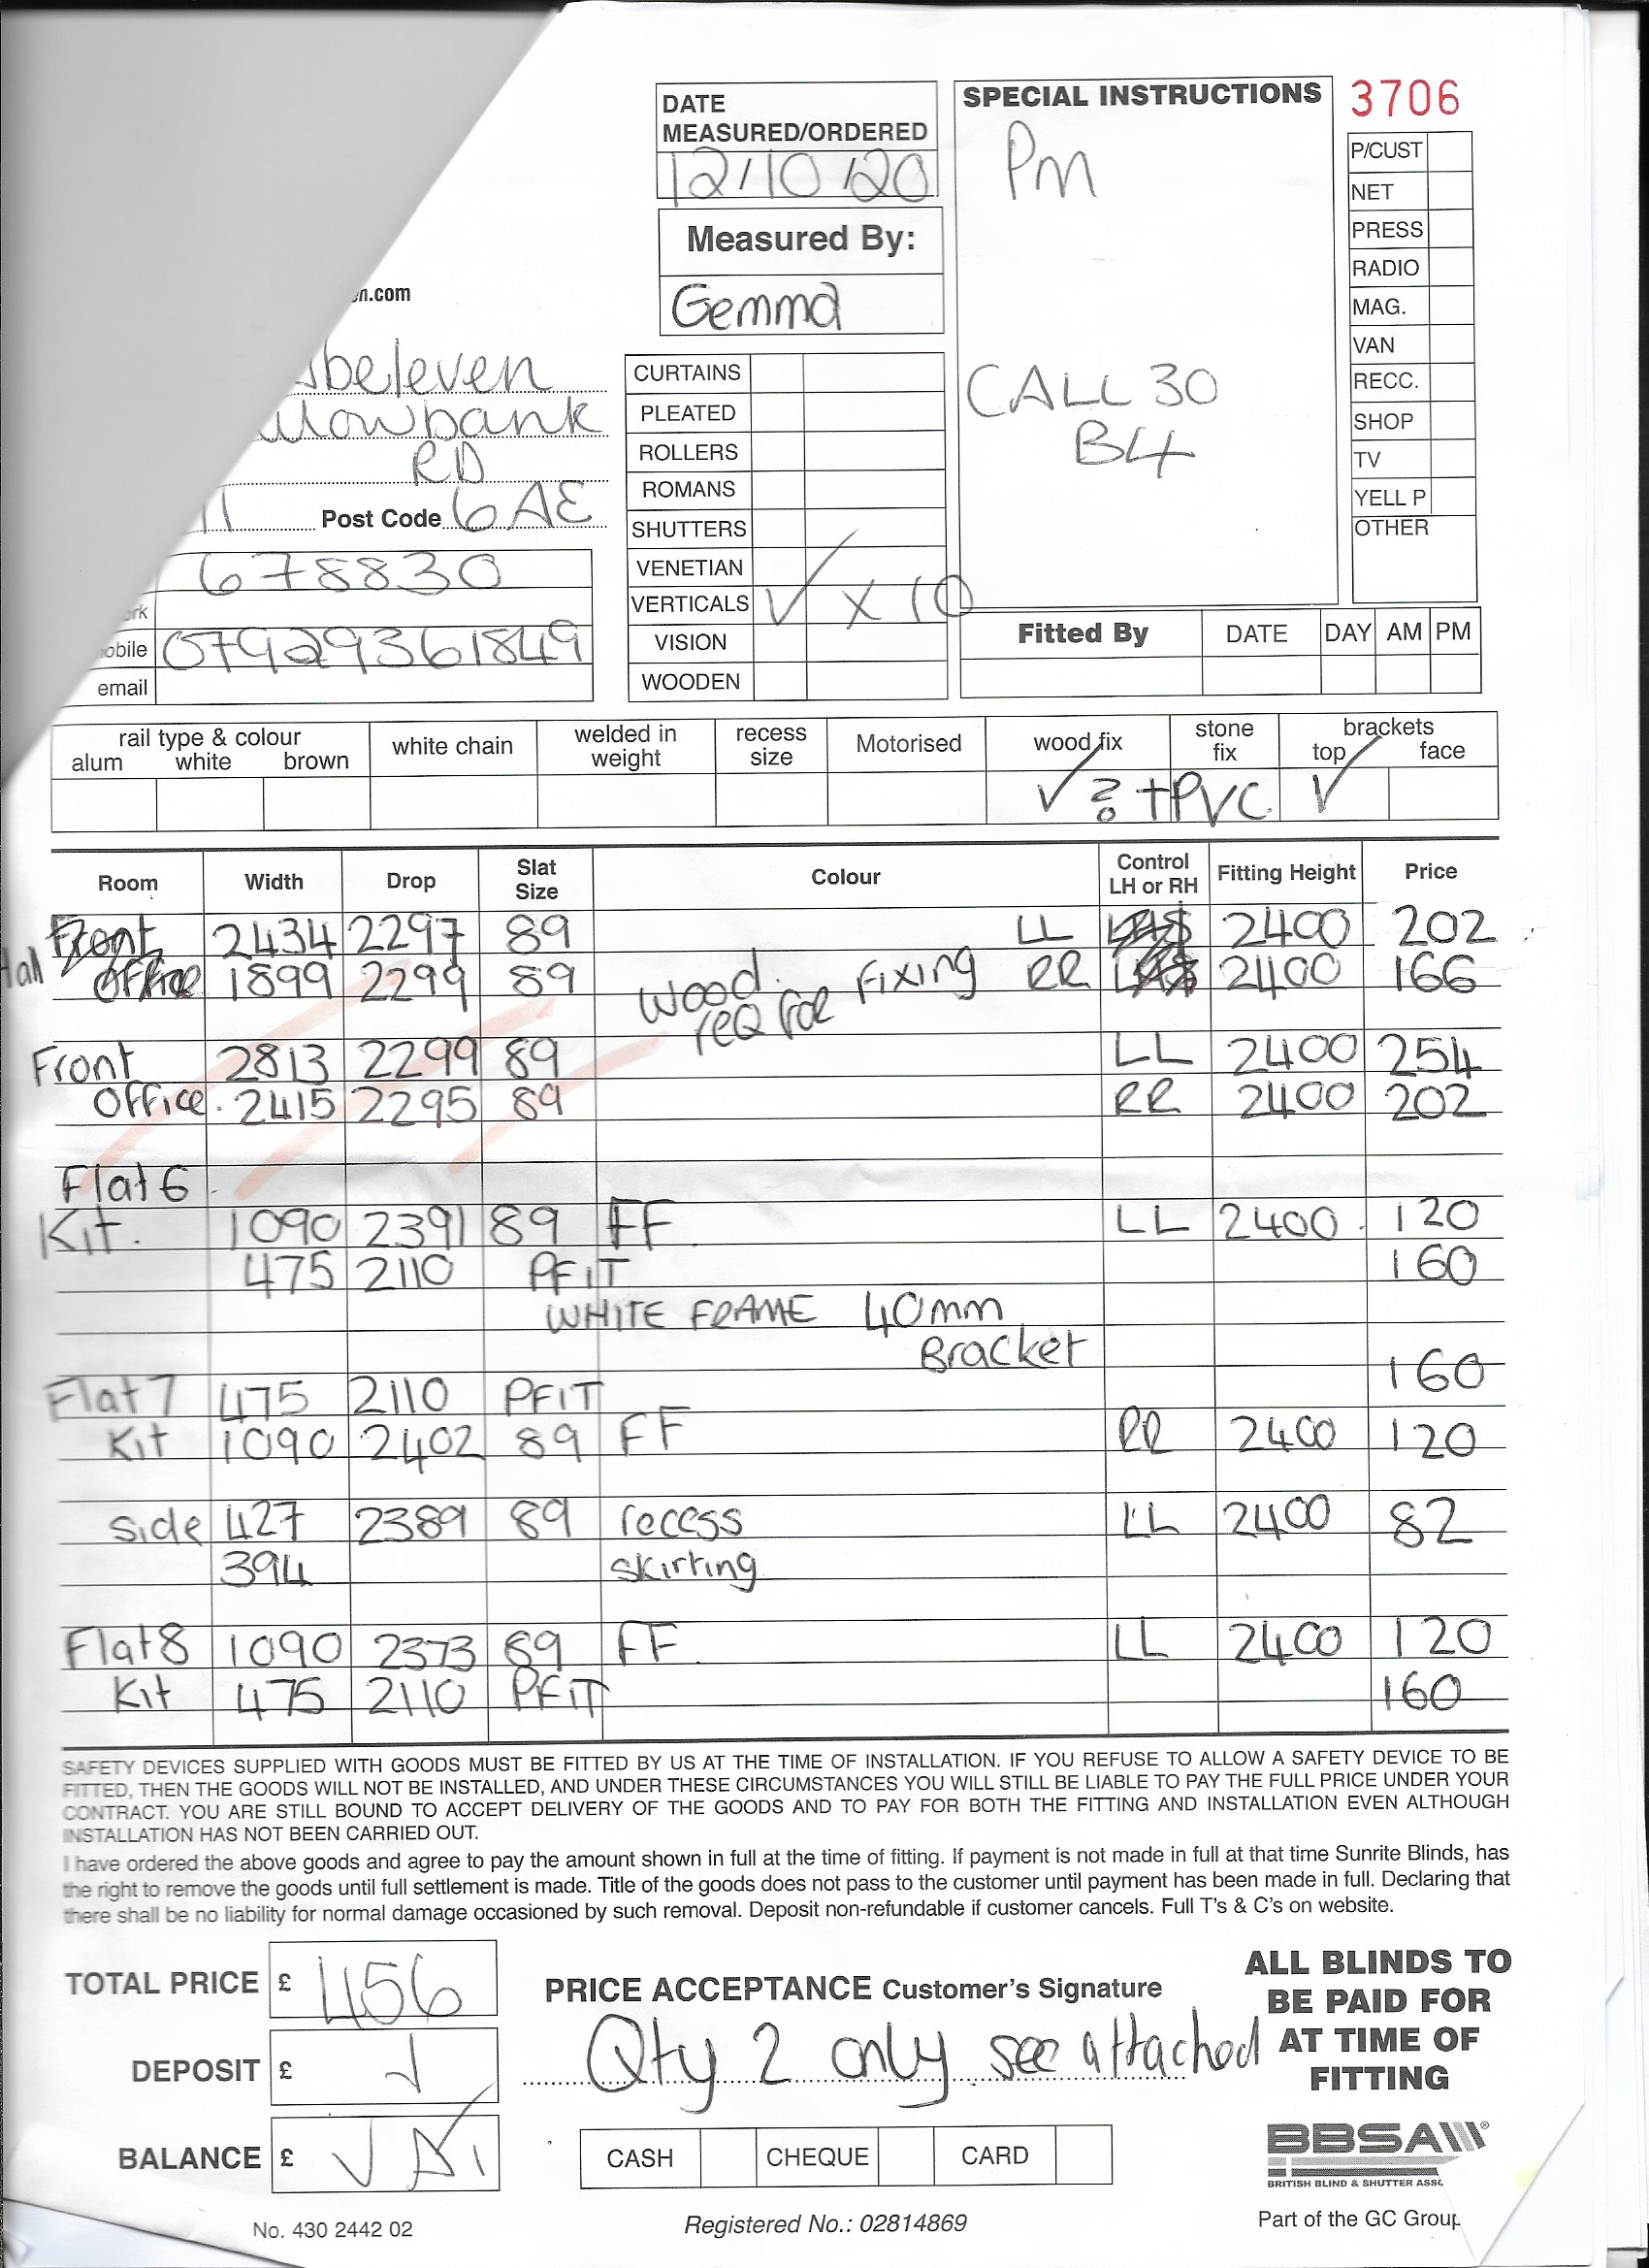 DATE MEASURED/ORDERED
12/10/20
Measured By:
Gemma
SPECIAL INSTRUCTIONS
Pm
CALL 30
B4
3706
P/CUST
NET
PRESS
RADIO
MAG.
VAN
RECC.
SHOP
TV
YELL P
OTHER
n.com
beleven
lowbank
RD
11 Post Code 6AE
678830
rk
obile 07929361849
email
CURTAINS
PLEATED
ROLLERS
ROMANS
SHUTTERS
VENETIAN
VERTICALS ✓ x 10
VISION
WOODEN
Fitted By DATE DAY AM PM
rail type & colour
alum white brown
white chain
welded in weight
recess size
Motorised
wood fix
stone fix
brackets
top face
✓ ? +PVC ✓
Room Width Drop Slat Size Colour Control LH or RH Fitting Height Price
Hall Front 2434 2297 89 LL 2400 202
office 1899 2299 89 wood req for fixing RR 2400 166
Front 2813 2299 89 LL 2400 254
office. 2415 2295 89 RR 2400 202
Flat 6
Kit. 1090 2391 89 FF LL 2400 120
475 2110 PFIT 160
WHITE FRAME 40mm
Bracket
Flat 7 475 2110 PFIT 160
Kit 1090 2402 89 FF RR 2400 120
side 427 2389 89 recess LL 2400 82
394 skirting
Flat 8 1090 2373 89 FF LL 2400 120
Kit 475 2110 PFIT 160
SAFETY DEVICES SUPPLIED WITH GOODS MUST BE FITTED BY US AT THE TIME OF INSTALLATION. IF YOU REFUSE TO ALLOW A SAFETY DEVICE TO BE
FITTED, THEN THE GOODS WILL NOT BE INSTALLED, AND UNDER THESE CIRCUMSTANCES YOU WILL STILL BE LIABLE TO PAY THE FULL PRICE UNDER YOUR
CONTRACT. YOU ARE STILL BOUND TO ACCEPT DELIVERY OF THE GOODS AND TO PAY FOR BOTH THE FITTING AND INSTALLATION EVEN ALTHOUGH
INSTALLATION HAS NOT BEEN CARRIED OUT.
I have ordered the above goods and agree to pay the amount shown in full at the time of fitting. If payment is not made in full at that time Sunrite Blinds, has
the right to remove the goods until full settlement is made. Title of the goods does not pass to the customer until payment has been made in full. Declaring that
there shall be no liability for normal damage occasioned by such removal. Deposit non-refundable if customer cancels. Full T's & C's on website.
TOTAL PRICE £ 456
DEPOSIT £ ✓
BALANCE £ ✓
PRICE ACCEPTANCE Customer's Signature
Qty 2 only see attached
CASH CHEQUE CARD
ALL BLINDS TO
BE PAID FOR
AT TIME OF
FITTING
BBSA
BRITISH BLIND & SHUTTER ASSC
Part of the GC Group
No. 430 2442 02
Registered No.: 02814869